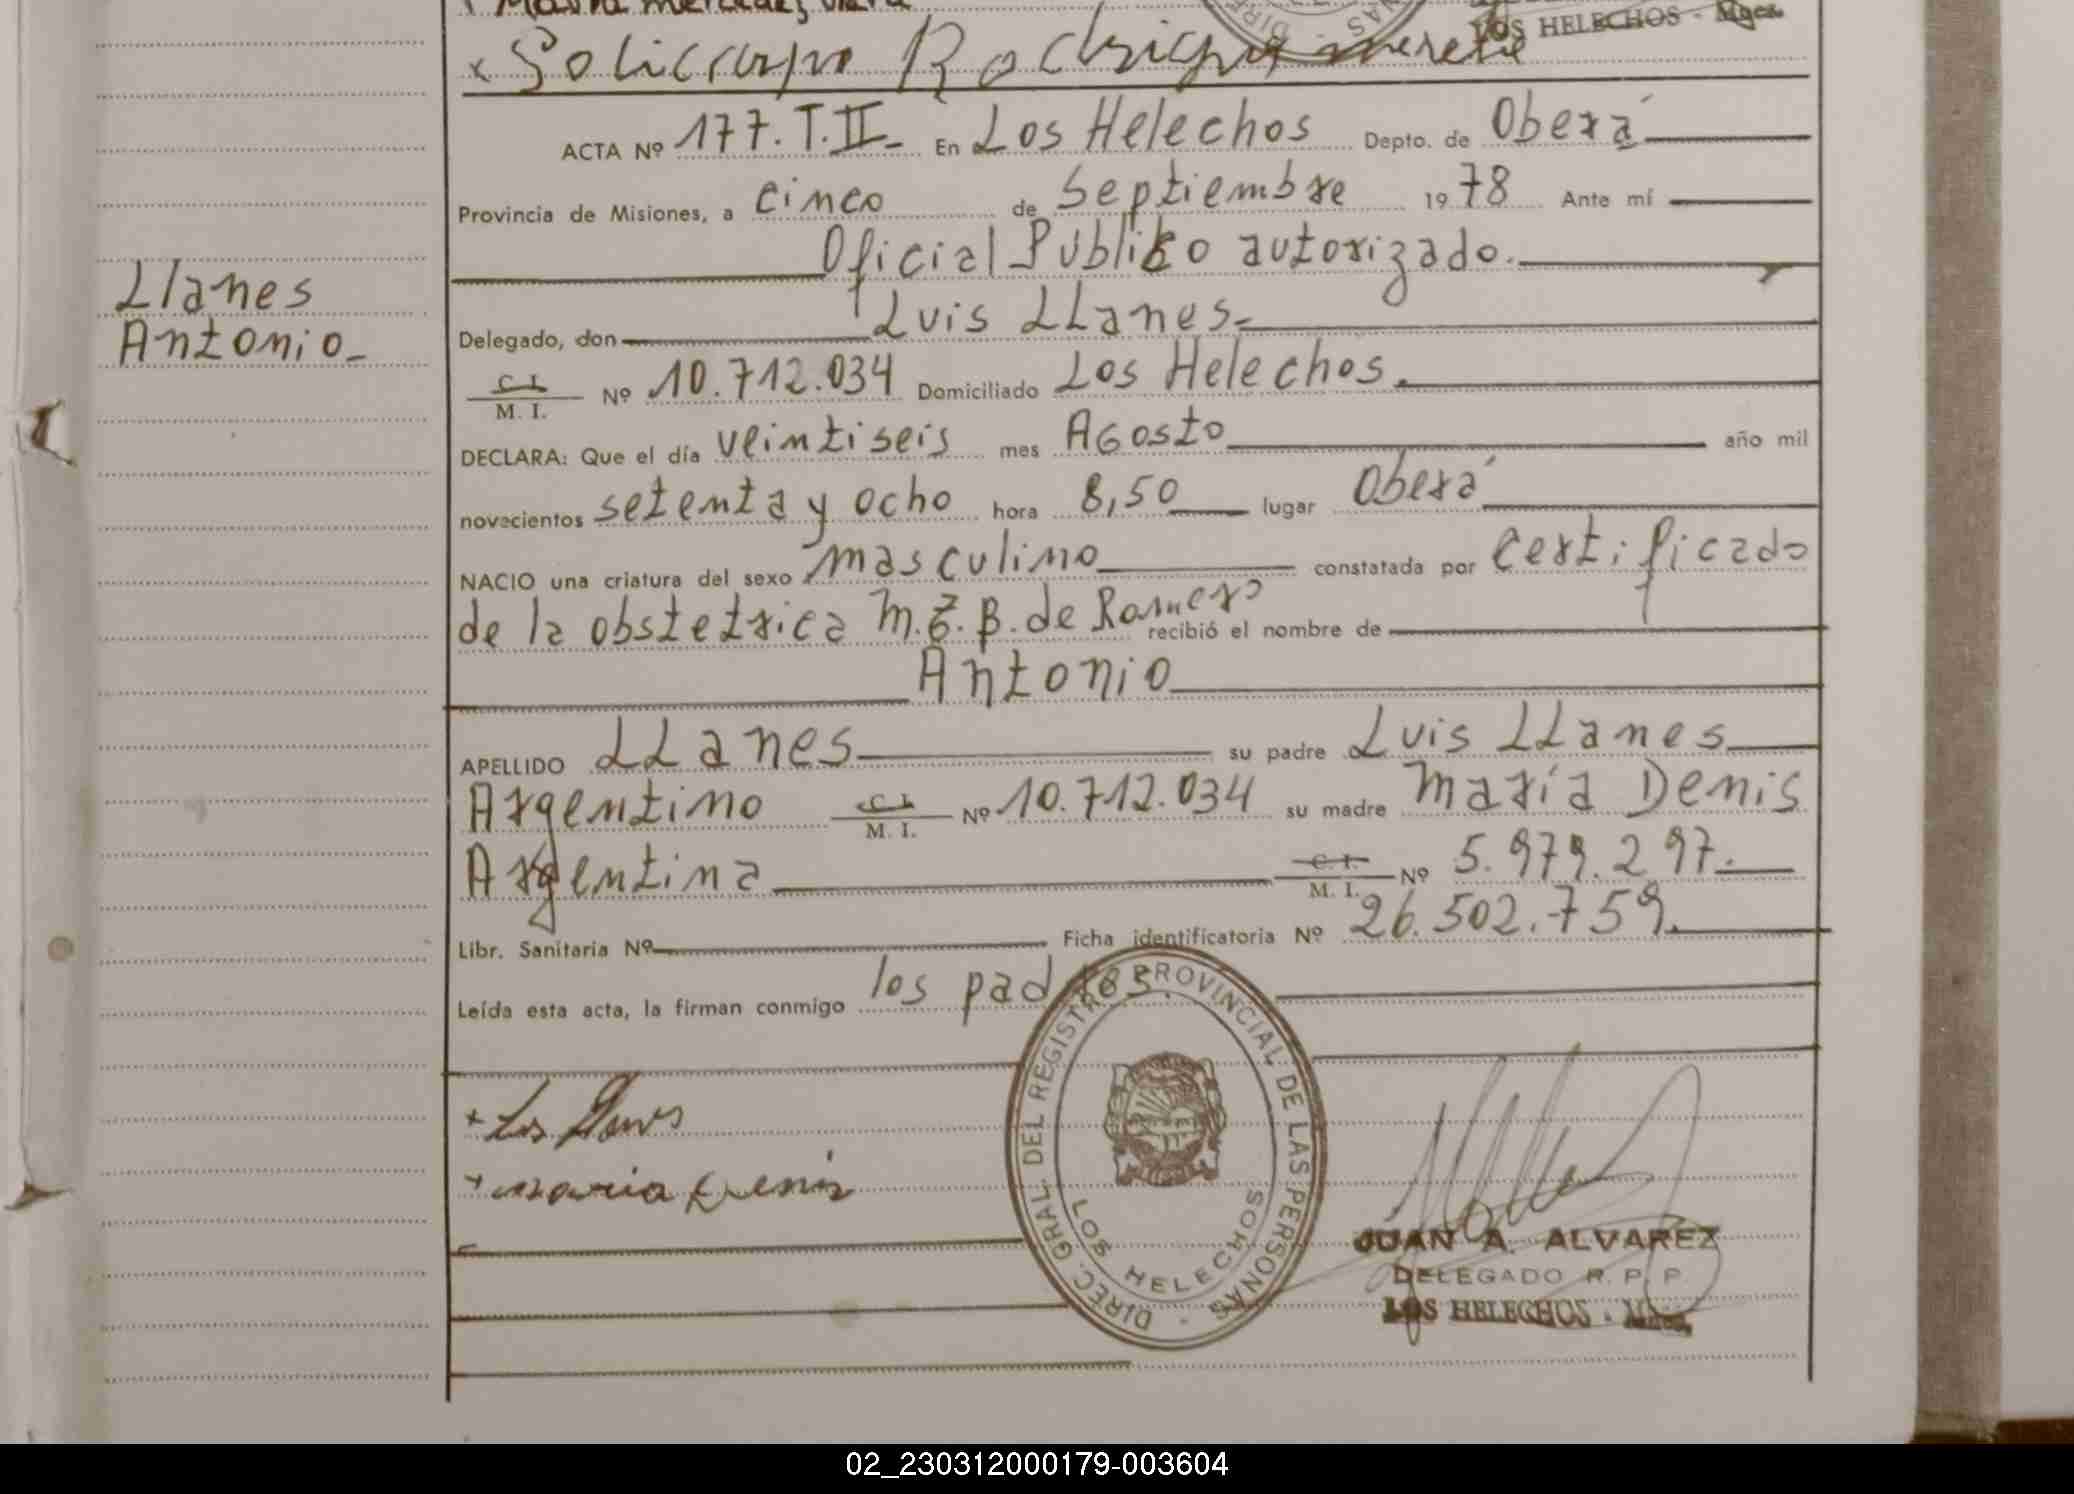 Maria Mercedes Viera
LOS HELECHOS - Mnes.
x Policarpo Rodriguez
ACTA Nº 177.T.II- En Los Helechos Depto. de Oberá
Provincia de Misiones, a cinco de Septiembre 1978 Ante mí
Oficial Publico autorizado.
Llanes
Antonio-
Delegado, don Luis LLanes-
C. I.
M. I. Nº 10.712.034 Domiciliado Los Helechos.
DECLARA: Que el día veintiseis mes Agosto año mil
novecientos setenta y ocho hora 8,50 lugar Oberá
NACIO una criatura del sexo masculino constatada por Certificado
de la obstetrica M.E.B. de Romero recibió el nombre de
Antonio
APELLIDO LLanes su padre Luis LLanes
Argentino C. I. M. I. Nº 10.712.034 su madre María Denis
Argentina C. I. M. I. Nº 5.979.297.
Libr. Sanitaria Nº Ficha identificatoria Nº 26.502.759.
Leída esta acta, la firman conmigo los padres.
DIREC. GRAL. DEL REGISTRO PROVINCIAL DE LAS PERSONAS
LOS HELECHOS
+ Luis Llanes
+ maria Denis
JUAN A. ALVAREZ
DELEGADO R. P. P.
LOS HELECHOS - Mnes.
02_230312000179-003604